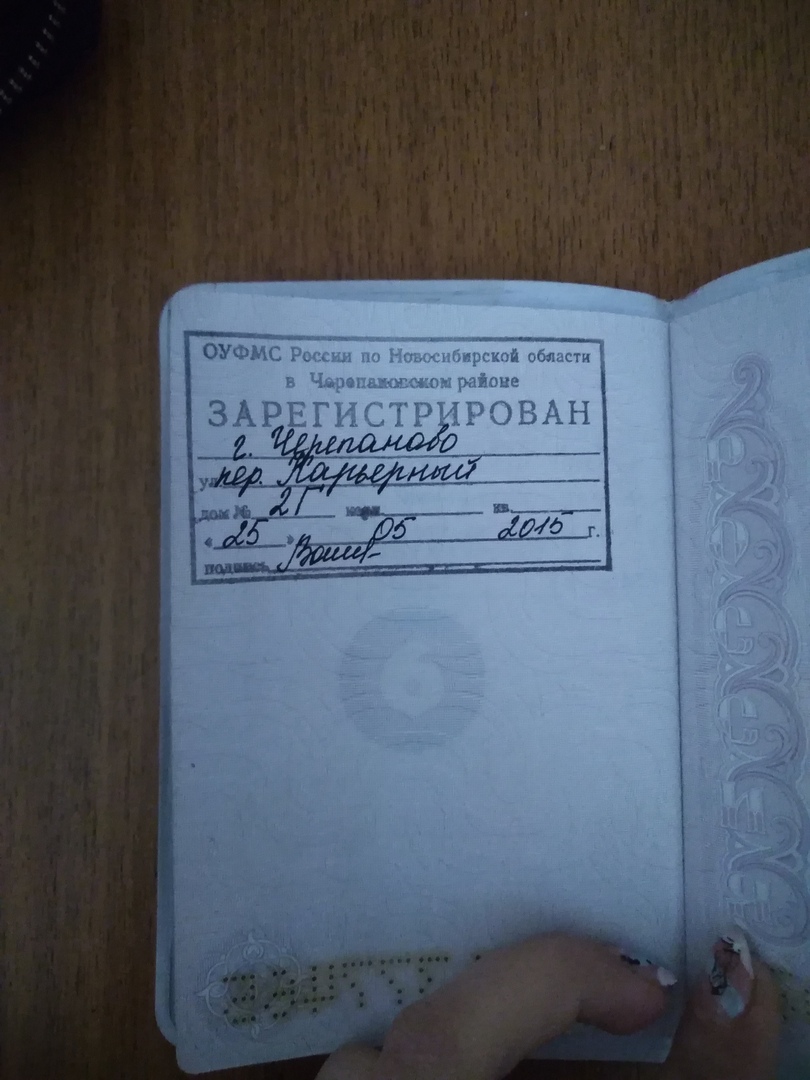 ОУФМС России по Новосибирской области
в Черепановском районе
ЗАРЕГИСТРИРОВАН
г. Черепаново
ул. пер. Карьерный
дом № 2Г корп. кв.
« 25 » 05 2015 г.
подпись
6